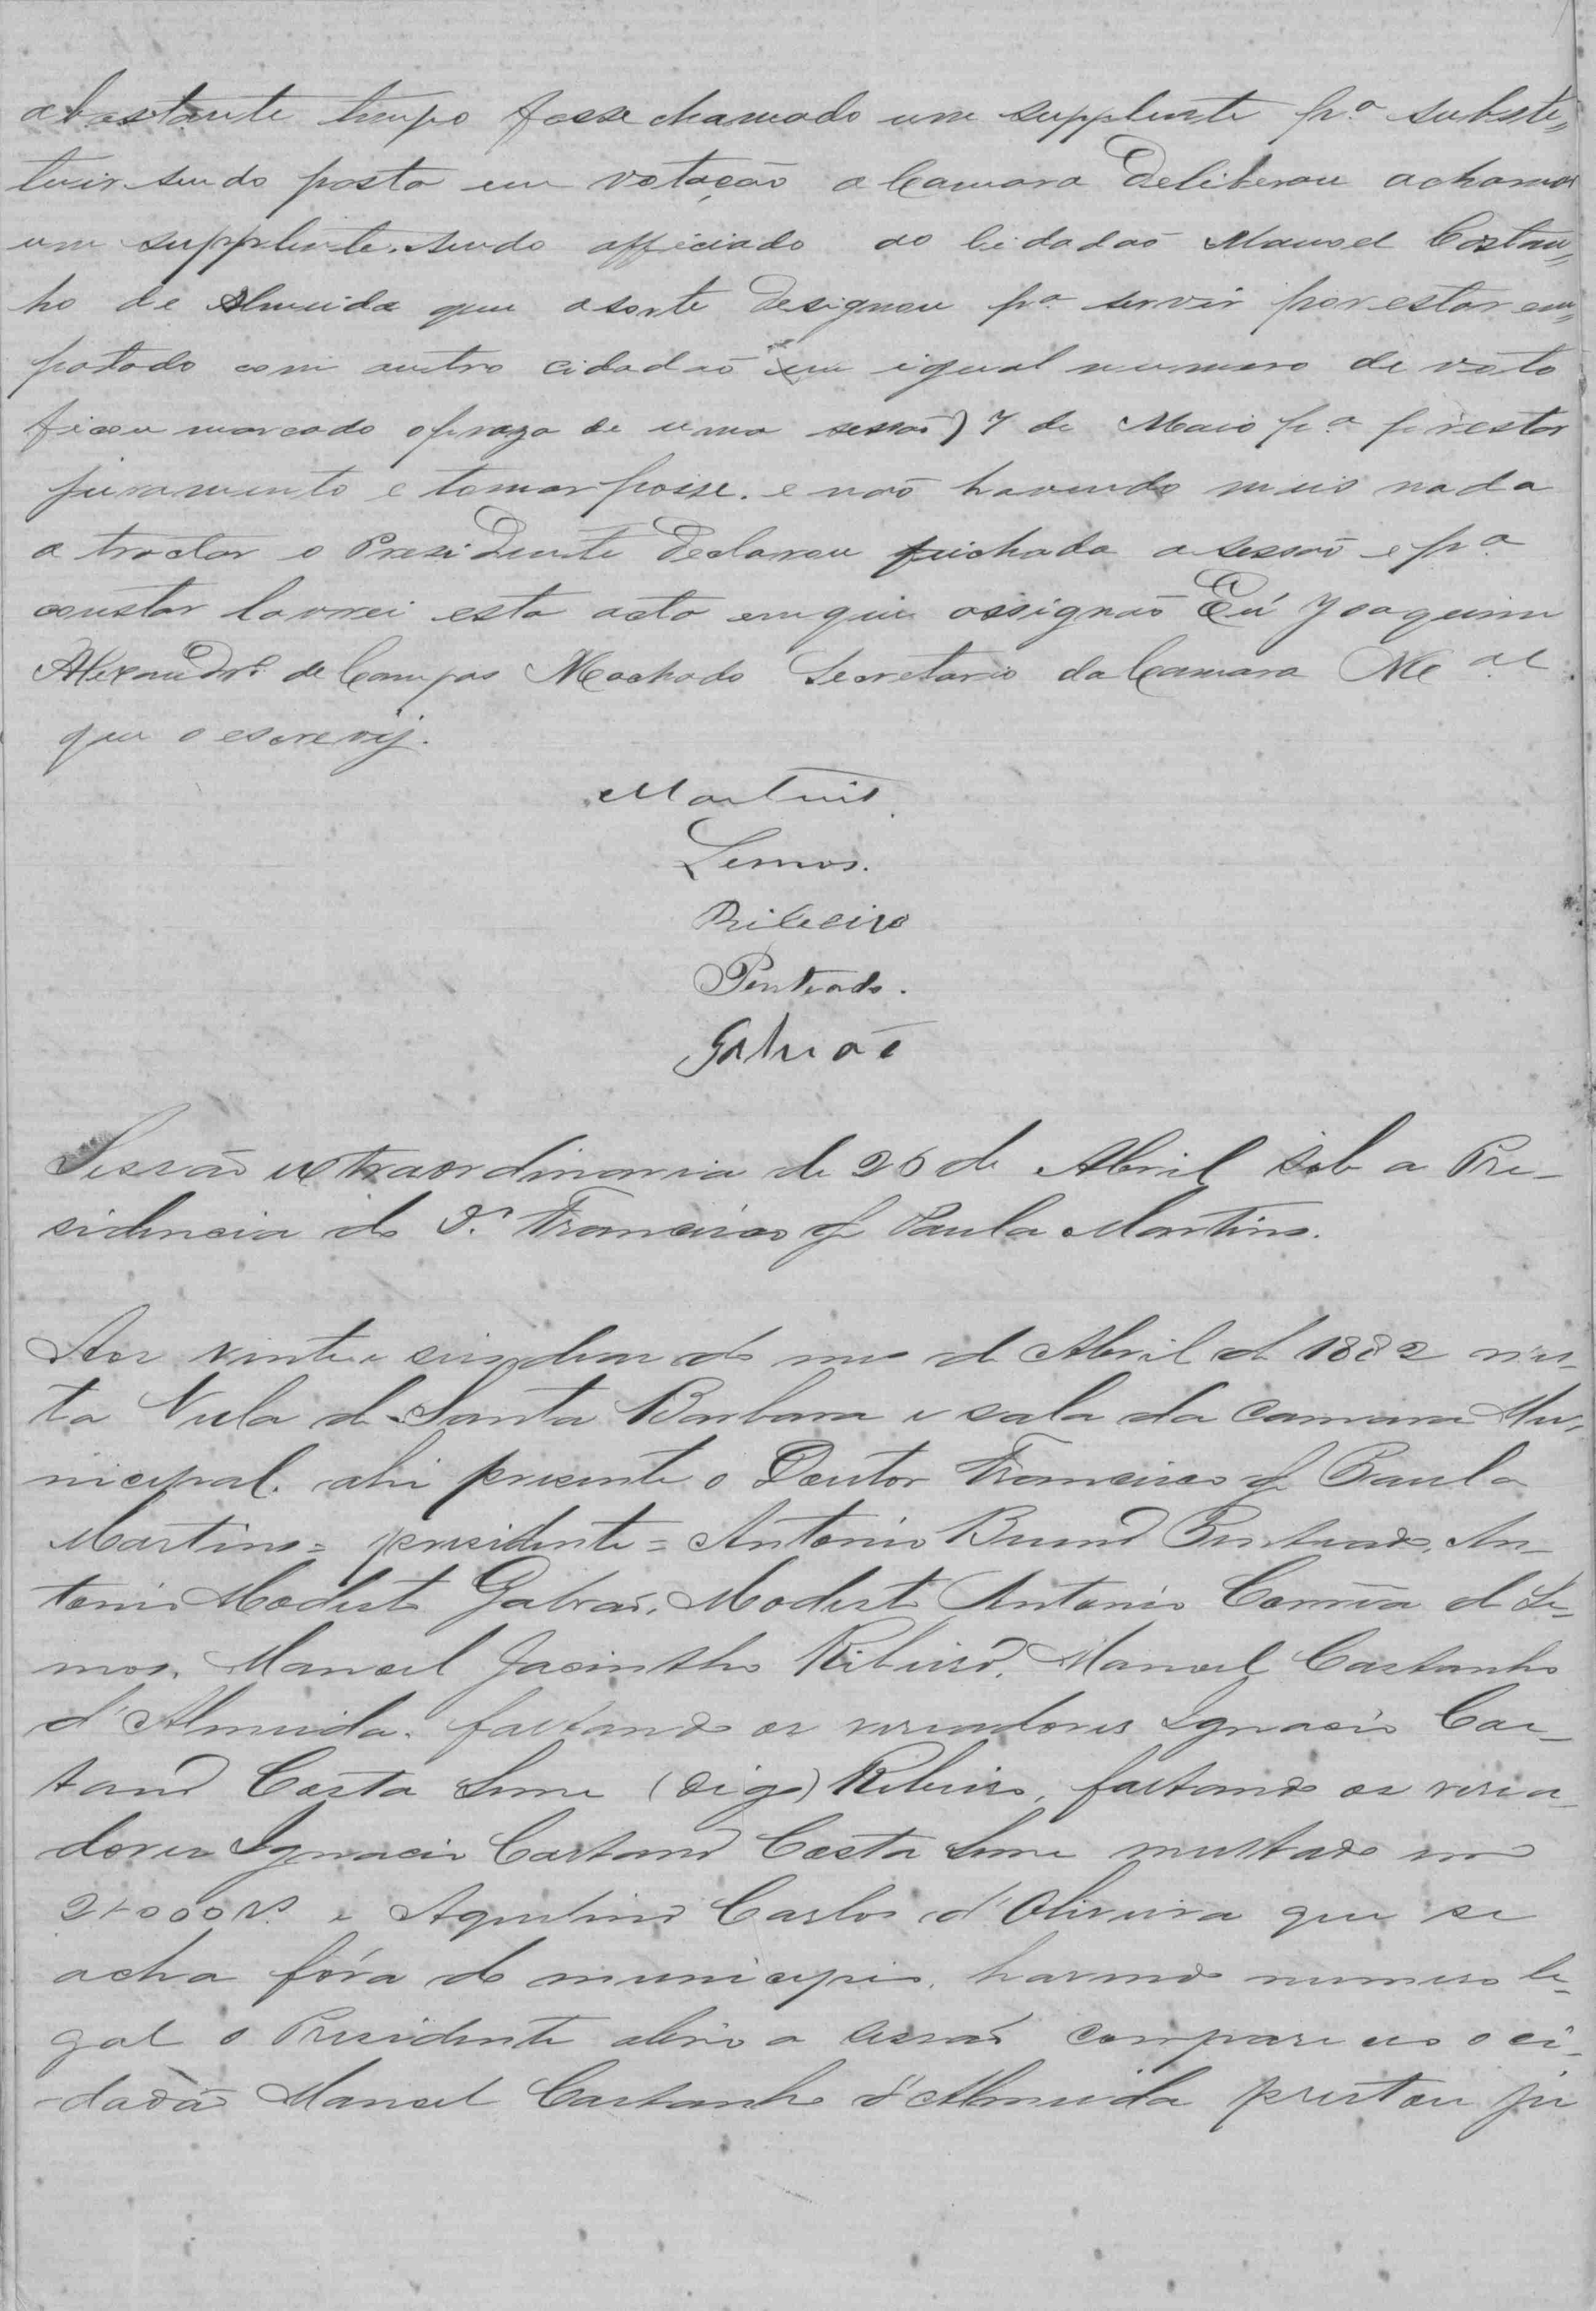 abastante tempo fosse chamado um supplente p.ª substi„
tuir sendo posto em votação a Camara Deliberou a chamar
um supplente. sendo officiado ao Cidadão Manoel Castan„
ho de Almeida que a sorte Designou p.ª servir por estar em„
patado com outro cidadão em igual numero de voto
ficou marcado o prazo de uma sessão) 7 de Maio p.ª prestar
juramento e tomar posse. e não havendo mais nada
a tractar o Presidente Declarou feichada a sessão e p.ª
constar lavrei esta acta em que assignão Eu Joaquim
Alexandr.e de Campos Machado Secretario da Camara M.al
que o escrevij.
Martins.
Lemos.
Ribeiro
Penteado.
Galvão
Sessão extraordinaria de 25 de Abril sob a Pre-
sidencia do D.r Francisco de Paula Martins.
Aos vinte e sinco dias do mes de Abril de 1882 nes-
ta Villa de Santa Barbara e sala da Camara Mu-
nicipal. ahi presente o Doutor Francisco de Paula
Martins = presidente = Antonio Bueno Penteado, An-
tonio Modesto Galvão, Modesto Antonio Corrêa de Le-
mos, Manoel Jacintho Ribeiro, Manoel Castanho
d'Almeida. faltando os vereadores Ignacio Cae-
tano Costa Leme (digo) Ribeiro, faltando os verea-
dores Ignacio Caetano Costa Leme multado em
2+000 rs. e Agustinho Carlos d'Oliveira que se
acha fóra do municipio, havendo numero le-
gal o Presidente abrio a sessão compareceo o ci-
-dadão Manoel Castanho d'Almeida prestou ju